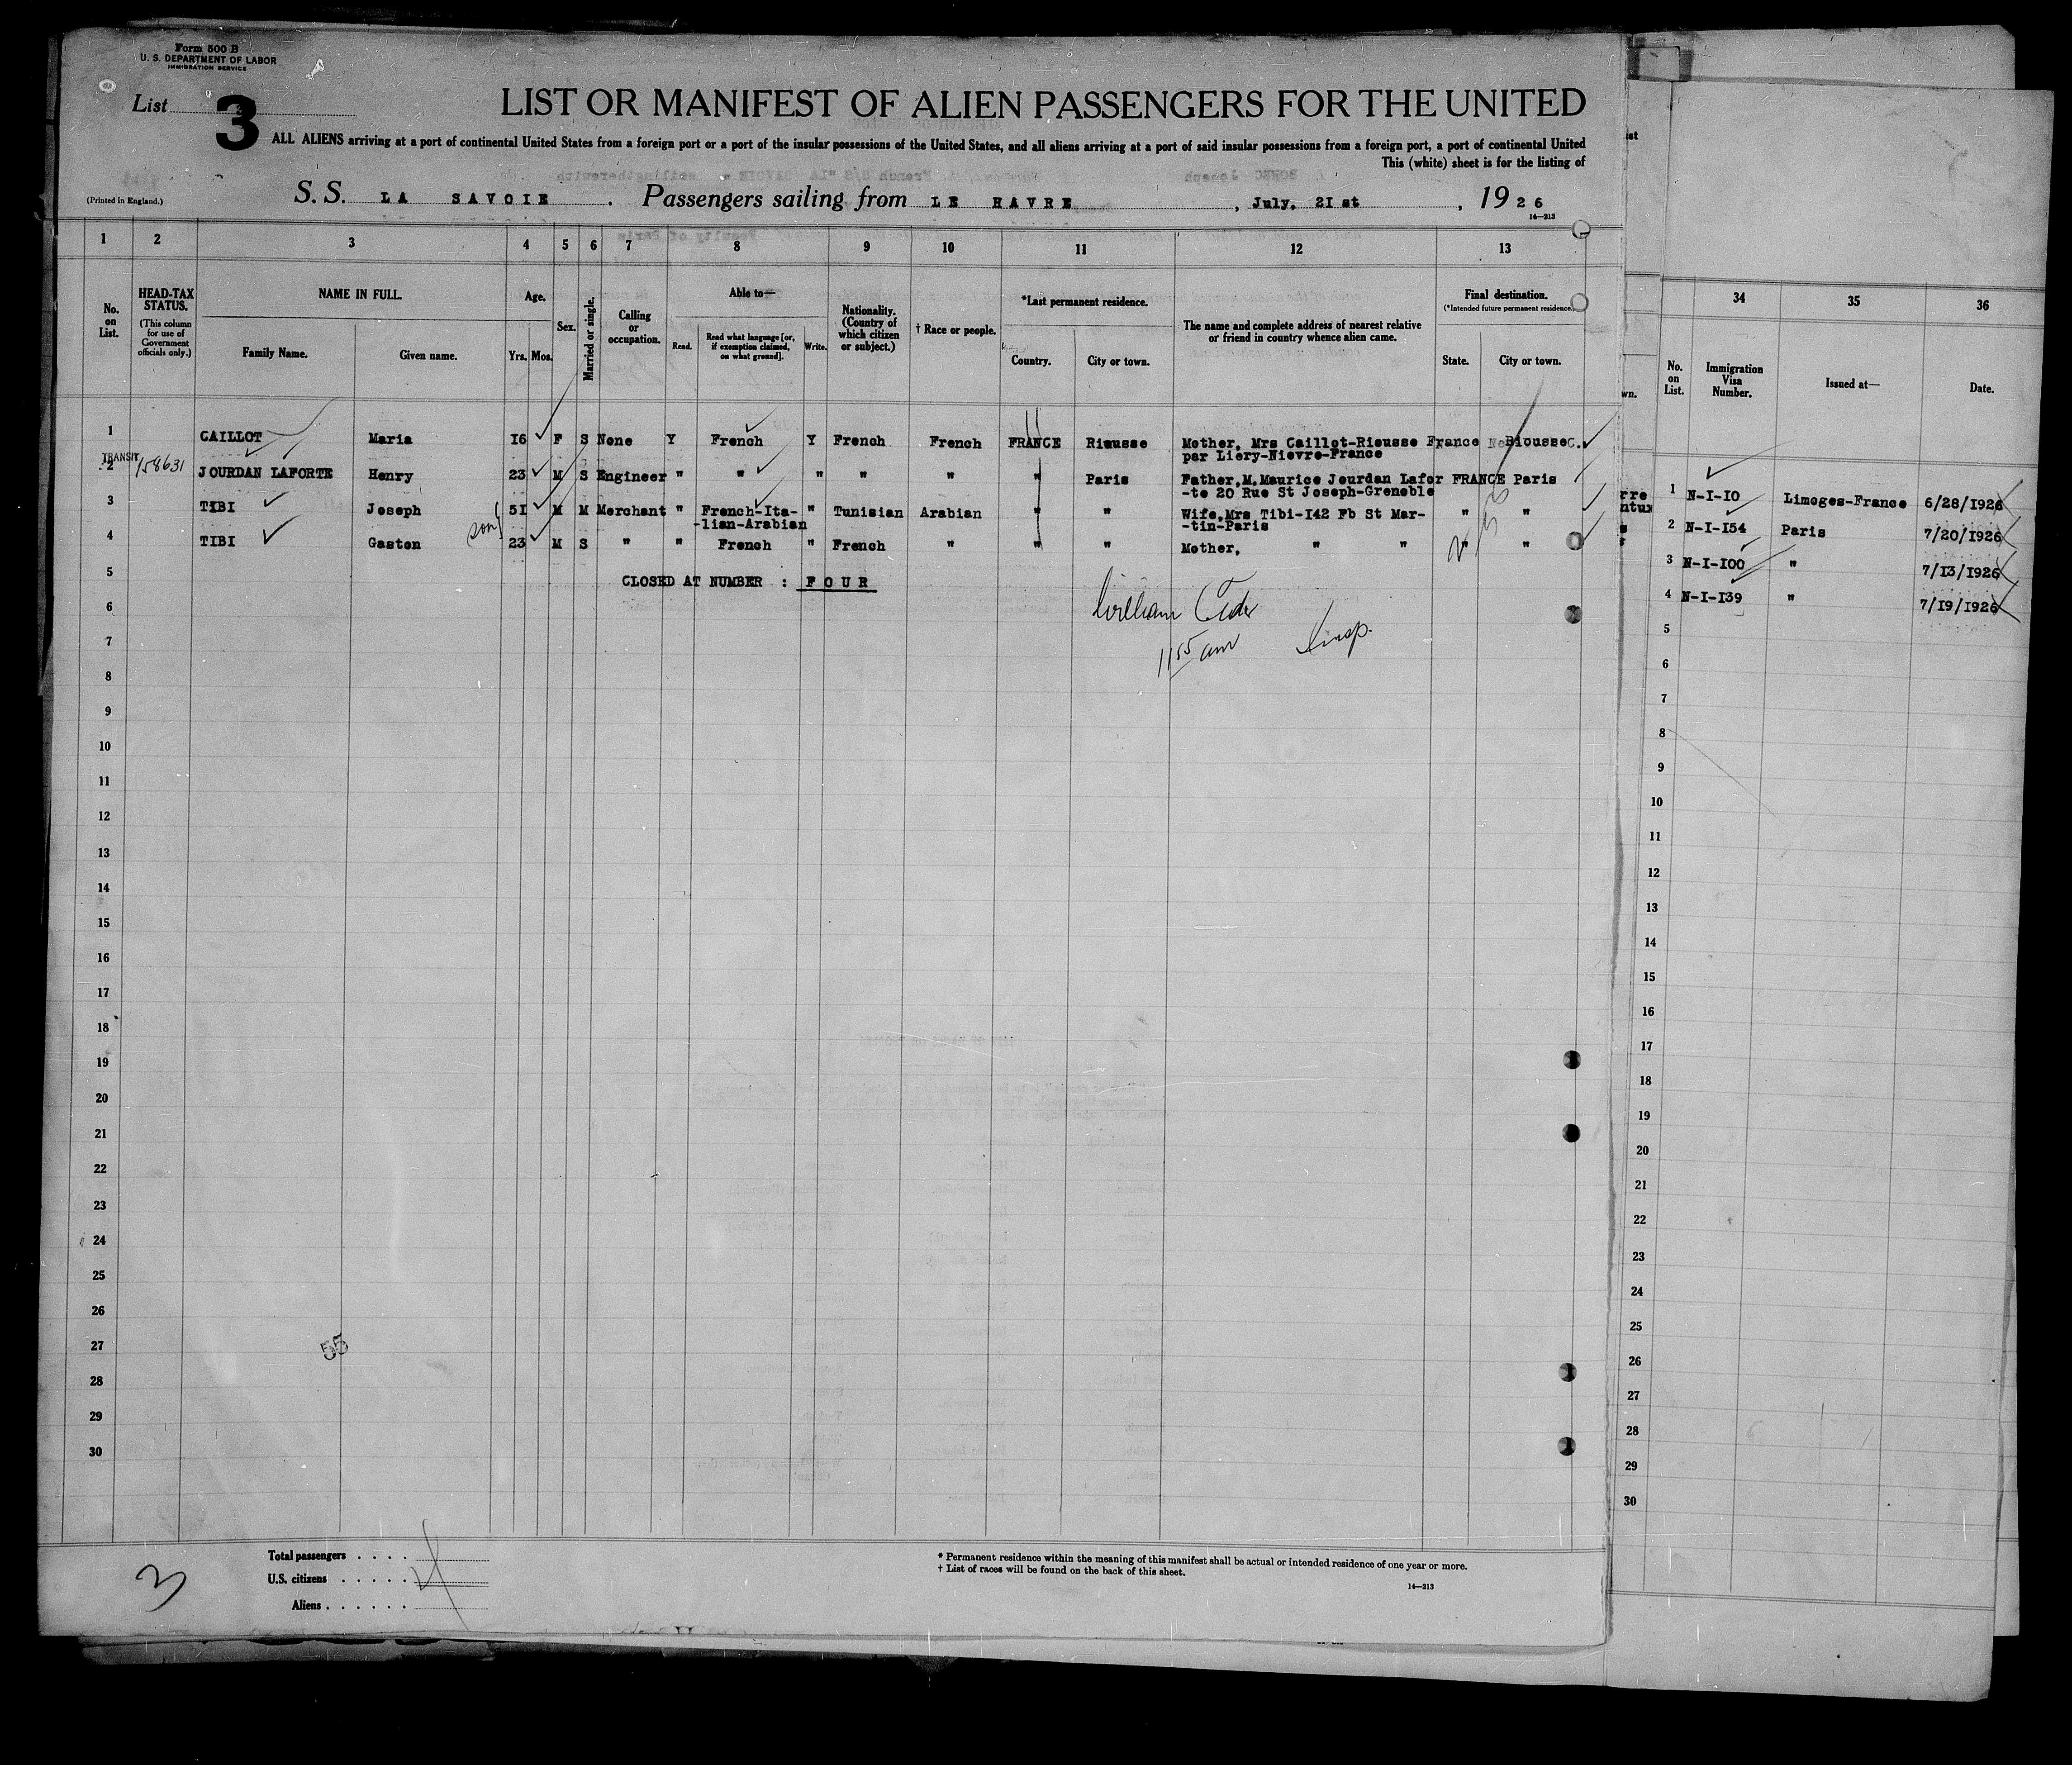 Form 500 B
U. S. DEPARTMENT OF LABOR
IMMIGRATION SERVICE
List 3
LIST OR MANIFEST OF ALIEN PASSENGERS FOR THE UNITED
ALL ALIENS arriving at a port of continental United States from a foreign port or a port of the insular possessions of the United States, and all aliens arriving at a port of said insular possessions from a foreign port, a port of continental United
This (white) sheet is for the listing of
(Printed in England.)
S. S. LA SAVOIE. Passengers sailing from LE HAVRE, July, 2Ist, 1926
14—313
1 2 3 4 5 6 7 8 9 10 11 12 13
No. on List.
HEAD-TAX STATUS.
(This column for use of Government officials only.)
NAME IN FULL.
Family Name. Given name.
Age.
Yrs. Mos.
Sex.
Married or single.
Calling or occupation.
Able to—
Read. Read what language [or, if exemption claimed, on what ground]. Write.
Nationality. (Country of which citizen or subject.)
† Race or people.
*Last permanent residence.
Country. City or town.
The name and complete address of nearest relative or friend in country whence alien came.
Final destination.
(*Intended future permanent residence.)
State. City or town.
34 35 36
No. on List. Immigration Visa Number. Issued at— Date.
1 CAILLOT Maria I6 F S None Y French Y French French FRANCE Riousse Mother, Mrs Caillot-Riousse France Riousse
par Liery-Nievre-France
TRANSIT
2 158631 JOURDAN LAFORTE Henry 23 M S Engineer " " " " " " Paris Father,M.Maurice Jourdan Lafor FRANCE Paris
-te 20 Rue St Joseph-Grenoble
3 TIBI Joseph 5I M M Merchant " French-Ita- " Tunisian Arabian " " Wife,Mrs Tibi-I42 Fb St Mar- " "
-lian-Arabian -tin-Paris
4 TIBI Gaston son 23 M S " " French " French " " " Mother, " " " "
5 CLOSED AT NUMBER : FOUR
6 William
7 11 55 am Insp.
8
9
10
11
12
13
14
15
16
17
18
19
20
21
22
23
24
25
26
27
28
29
30
55
1 N-I-I0 Limoges-France 6/28/1926
2 N-I-I54 Paris 7/20/1926
3 N-I-I00 " 7/13/1926
4 N-I-I39 " 7/19/1926
5
6
7
8
9
10
11
12
13
14
15
16
17
18
19
20
21
22
23
24
25
26
27
28
29
30
3
Total passengers . . . .
U.S. citizens . . . . . 4
Aliens . . . . . .
* Permanent residence within the meaning of this manifest shall be actual or intended residence of one year or more.
† List of races will be found on the back of this sheet.
14—313